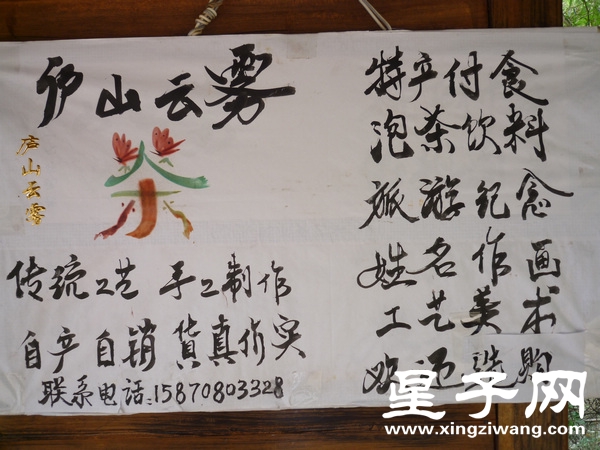 庐山云雾
庐山云雾
茶
传统工艺 手工制作
自产自销 货真价实
联系电话:15870803328
特产付食
泡茶饮料
旅游纪念
姓名作画
工艺美术
欢迎选购
星子网
www.xingziwang.com